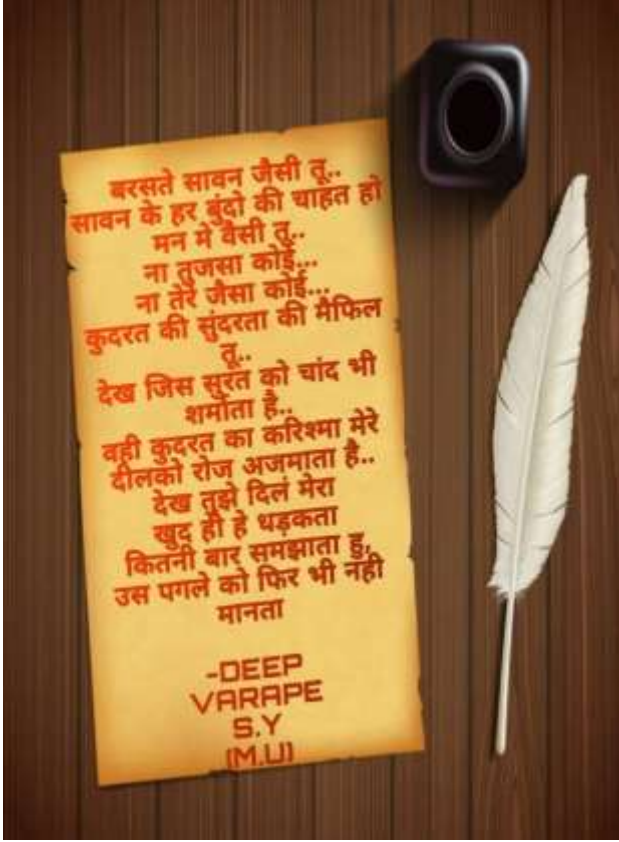 बरसते सावन जैसी तू..
सावन के हर बुंदो की चाहत हो
मन मे वैसी तू..
ना तुजसा कोई...
ना तेरे जैसा कोई...
कुदरत की सुंदरता की मैफिल
तू..
देख जिस सुरत को चांद भी
शर्माता है..
वही कुदरत का करिश्मा मेरे
दीलको रोज अजमाता है..
देख तुझे दिलं मेरा
खुद ही हे धड़कता
कितनी बार समझाता हु,
उस पगले को फिर भी नही
मानता
-DEEP
VARAPE
S.Y
(M.U)